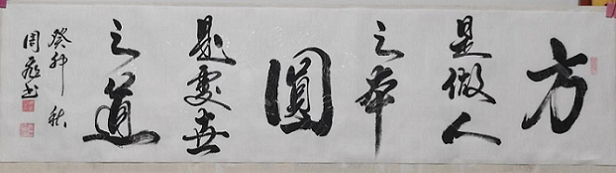 方
是做人
之本
圓
是處世
之道
癸卯秋
周